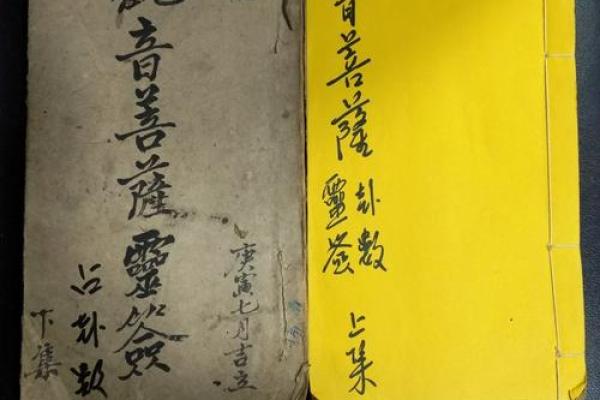 庚寅七月吉立
音菩薩靈簽
占卦数
下集
音菩薩
卦数
靈签
上集